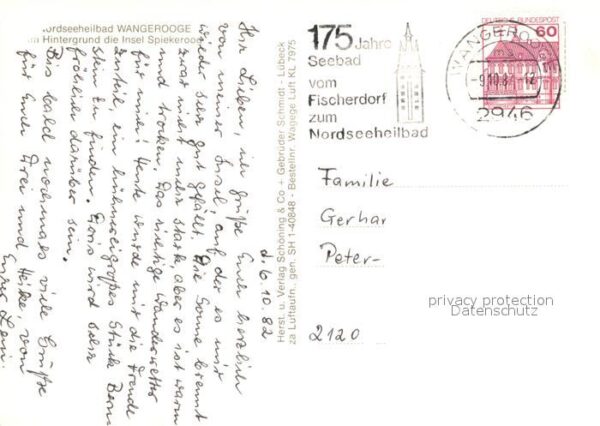 Nordseeheilbad WANGEROOGE
Im Hintergrund die Insel Spiekeroog
d. 6.10.82
Ihr Lieben, ich grüße Euch herzlich
von meiner Insel, auf der es mir
wieder sehr gut gefällt. Die Sonne brennt
zwar nicht mehr stark, aber es ist warm
und trocken. Das richtige Wanderwetter
für mich! Heute wurde mir die Freude
zuteil, ein hühnereigroßes Stück Bern-
stein zu finden. Doris wird sehr
fröhlich darüber sein.
Bis bald nochmals viele Grüße
für Euch drei und Heike, von
Eurer
Herst. u. Verlag Schöning & Co + Gebrüder Schmidt · Lübeck
za Luftaufn., gen. SH 1-40848 - Bestellnr. Wagege Luft KL 7975
175 Jahre
Seebad
vom
Fischerdorf
zum
Nordseeheilbad
WANGEROOGE
-9.10.8 -12
2946
DEUTSCHE BUNDESPOST
60
Familie
Gerhar
Peter-
2120
privacy protection
Datenschutz